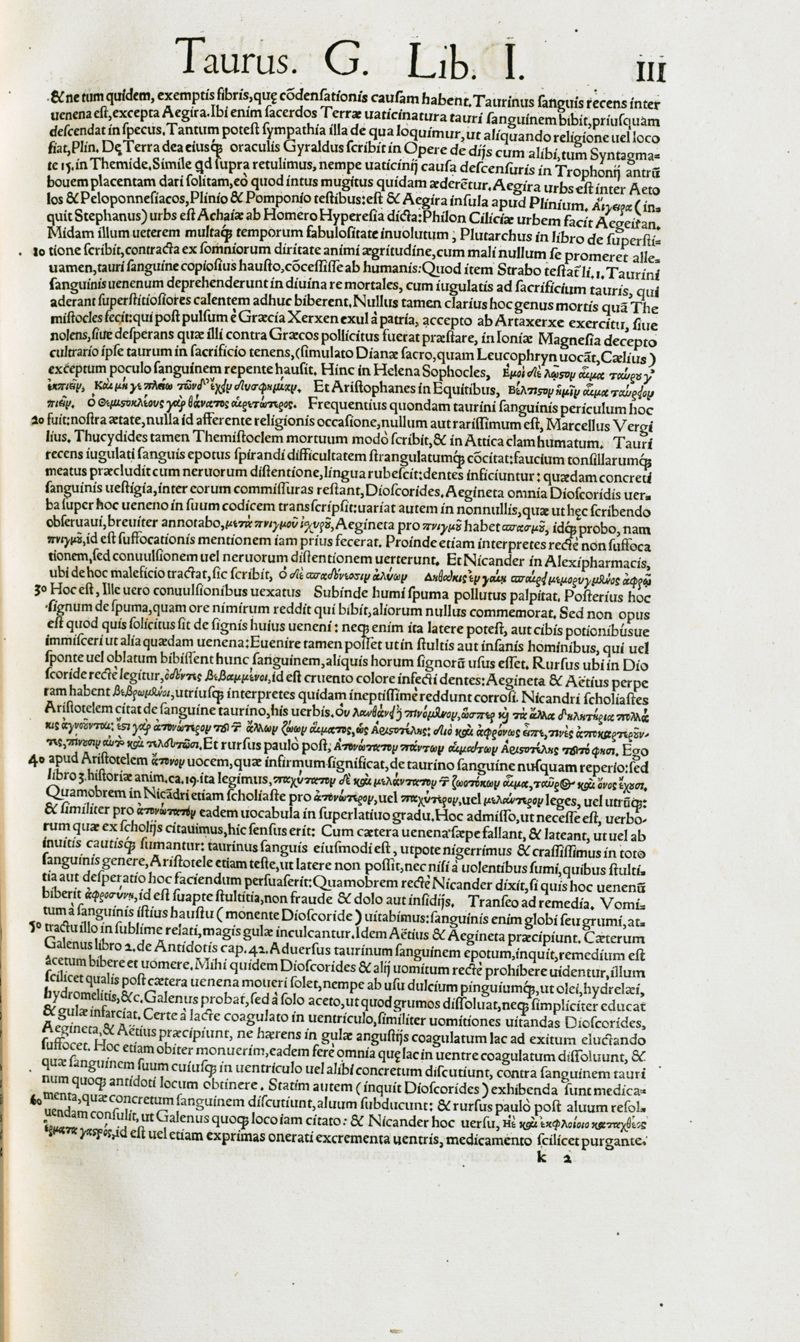 Taurus. G. Lib. I. III
&ne tum quidem, exemptis fibris, quę cōdensationis causam habent. Taurinus sanguis recens inter
uenena est, excepta Aegira. Ibi enim sacerdos Terræ uaticinatura tauri sanguinem bibit, priusquam
descendat in specus. Tantum potest sympathia illa de qua loquimur, ut aliquando religione uel loco
fiat, Plin. Dę Terra dea eiusq́ oraculis Gyraldus scribit in Opere de dijs cum alibi, tum Syntagma-
te 15. in Themide. Simile qd supra retulimus, nempe uaticinij causa descensuris in Trophonij antrū
bouem placentam dari solitam, eò quod intus mugitus quidam æderêtur. Aegira urbs est inter Aeto
los & Peloponnesiacos, Plinio & Pomponio testibus: est & Aegira insula apud Plinium. Αἴγειρα (in-
quit Stephanus) urbs est Achaiæ ab Homero Hyperesia dicta: Philon Ciliciæ urbem facit Aegeiran.
Midam illum ueterem multaq́ temporum fabulositate inuolutum, Plutarchus in libro de supersti-
10 tione scribit, contracta ex somniorum diritate animi ægritudine, cum mali nullum se promeret alle-
uamen, tauri sanguine copiosius hausto, cōcessisse ab humanis: Quod item Strabo testat̃ li. 1. Taurini
sanguinis uenenum deprehenderunt in diuina re mortales, cum iugulatis ad sacrificium tauris, qui
aderant superstitiosiores calentem adhuc biberent. Nullus tamen clarius hoc genus mortis quā The
mistocles fecit: qui post pulsum è Græcia Xerxen exul à patria, accepto ab Artaxerxe exercitu, siue
nolens, siue desperans quæ illi contra Græcos pollicitus fuerat præstare, in Ioniæ Magnesia decepto
cultrario ipse taurum in sacrificio tenens, (simulato Dianæ sacro, quam Leucophryn uocāt, Cælius)
exceptum poculo sanguinem repente hausit. Hinc in Helena Sophocles, Εμοὶ δὲ λῷσον αἷμα ταύρου γ'
ἐκπιεῖν, Καὶ μή γε πλείω τῶνδ' ἔχειν δυσφημίαν. Et Aristophanes in Equitibus, Βέλτιστον ἡμῖν αἷμα ταύρειον
πιεῖν. ὁ Θεμιστοκλέους γὰρ θάνατος αἱρετώτερος. Frequentius quondam taurini sanguinis periculum hoc
20 fuit: nostra ætate, nulla id afferente religionis occasione, nullum aut rarissimum est, Marcellus Vergi
lius. Thucydides tamen Themistoclem mortuum modò scribit, & in Attica clam humatum. Tauri
recens iugulati sanguis epotus spirandi difficultatem strangulatumq́ cōcitat: faucium tonsillarumq́
meatus præcludit cum neruorum distentione, lingua rubescit: dentes inficiuntur: quædam concreti
sanguinis uestigia, inter eorum commissuras restant, Dioscorides. Aegineta omnia Dioscoridis uer-
ba super hoc ueneno in suum codicem transcripsit: uariat autem in nonnullis, quæ ut hęc scribendo
obseruaui, breuiter annotabo, μετὰ πνιγμοῦ ἰσχυροῦ, Aegineta pro πνιγμοῦ habet σπασμοῦ, idq́ probo, nam
πνιγμοῦ, id est suffocationis mentionem iam prius fecerat. Proinde etiam interpretes rectè non suffoca
tionem, sed conuulsionem uel neruorum distentionem uerterunt. Et Nicander in Alexipharmacis,
ubi de hoc maleficio tractat, sic scribit,
30 Hoc est, Ille uero conuulsionibus uexatus Subinde humi spuma pollutus palpitat. Posterius hoc
signum de spuma, quam ore nimirum reddit qui bibit, aliorum nullus commemorat. Sed non opus
est quod quis solicitus sit de signis huius ueneni: neq́ enim ita latere potest, aut cibis potionibúsue
immisceri ut alia quædam uenena: Euenire tamen posset ut in stultis aut insanis hominibus, qui uel
sponte uel oblatum bibissent hunc sanguinem, aliquis horum signorū usus esset. Rursus ubi in Dio
scoride rectè legitur, ὀδόντες βεβαμμένοι, id est cruento colore infecti dentes: Aegineta & Aëtius perpe
ram habent βεβρωμένοι, utriusq́ interpretes quidam ineptissimè reddunt corrosi. Nicandri scholiastes
Aristotelem citat de sanguine taurino, his uerbis. Οὐ λανθάνει πινόμενον, ὥσπερ καὶ τὰ ἄλλα δηλητήρια πολλά
κις ἀγνοοῦνται· ἔστι γὰρ ἀπονώτερον τοῦ τῶν ἄλλων ζώων αἵματος, ὡς Αριστοτέλης· διὸ καὶ ἀφρόνως εἶπε, τινὲς ἀποκαρτεροῦν-
τες, πίνουσιν αὐτὸ καὶ τελευτῶσι. Et rursus paulò post, Απονώτατον πάντων αἱμάτων Αριστοτέλης τοῦτό φησι. Ego
40 apud Aristotelem ἄπονον uocem, quæ infirmum significat, de taurino sanguine nusquam reperio: sed
libro 3. historiæ anim. ca. 19. ita legimus, παχύτατον δὲ καὶ μελάντατον τῶν ζωοτόκων αἷμα, ταῦρος καὶ ὄνος ἔχουσι.
Quamobrem in Nicādri etiam scholiaste pro ἀπονώτερον, uel παχύτερον, uel μελάντερον leges, uel utrūq́:
& similiter pro ἀπονώτατον eadem uocabula in superlatiuo gradu. Hoc admisso, ut necesse est, uerbo-
rum quæ ex scholijs citauimus, hic sensus erit: Cum cætera uenena sæpe fallant, & lateant, ut uel ab
inuitis cautisq́ sumantur: taurinus sanguis eiusmodi est, utpote nigerrimus & crassissimus in toto
sanguinis genere, Aristotele etiam teste, ut latere non possit, nec nisi à uolentibus sumi, quibus stulti-
tia aut desperatio hoc faciendum persuaserit: Quamobrem rectè Nicander dixit, si quis hoc uenenū
biberit ἀφροσύνῃ, id est suapte stultitia, non fraude & dolo aut insidijs. Transeo ad remedia. Vomi-
tum à sanguinis istius haustu (monente Dioscoride) uitabimus: sanguinis enim globi seu grumi, at-
50 tractu illo in sublime relati, magis gulæ inculcantur. Idem Aëtius & Aegineta præcipiunt. Cæterum
Galenus libro 2. de Antidotis cap. 42. Aduersus taurinum sanguinem epotum, inquit, remedium est
acetum bibere et uomere. Mihi quidem Dioscorides & alij uomitum rectè prohibere uidentur, illum
scilicet qualis post cætera uenena moueri solet, nempe ab usu dulcium pinguiumq́, ut olei, hydrelæi,
hydromelitis, &c. Galenus probat, sed à solo aceto, ut quod grumos dissoluat, neq́ simpliciter educat
& gulæ infarciat. Certe à lacte coagulato in uentriculo, similiter uomitiones uitandas Dioscorides,
Aegineta, & Aëtius præcipiunt, ne hærens in gulæ angustijs coagulatum lac ad exitum eluctando
suffocet. Hoc etiam obiter monuerim, eadem ferè omnia quę lac in uentre coagulatum dissoluunt, &
quæ sanguinem suum cuiusq́ in uentriculo uel alibi concretum discutiunt, contra sanguinem tauri
num quoq́ antidoti locum obtinere. Statim autem (inquit Dioscorides) exhibenda sunt medica-
60 menta, quæ concretum sanguinem discutiunt, aluum subducunt: & rursus paulò post aluum resol-
uendam consulit, ut Galenus quoq́ loco iam citato: & Nicander hoc uersu,
γαστρός, id est uel etiam exprimas onerati excrementa uentris, medicamento scilicet purgante.
k 2